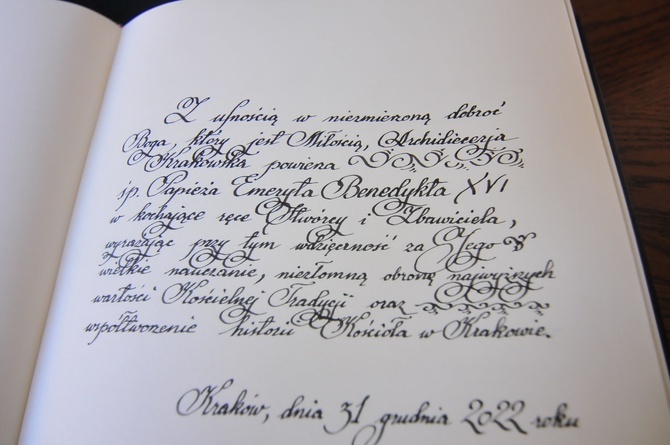 Z ufnością w niezmierzoną dobroć
Boga, który jest Miłością, Archidiecezja
Krakowska powierza
śp. Papieża Emeryta Benedykta XVI
w kochające ręce Stwórcy i Zbawiciela,
wyrażając przy tym wdzięczność za Jego
wielkie nauczanie, niezłomną obronę najwyższych
wartości Kościelnej Tradycji oraz
współtworzenie historii Kościoła w Krakowie.
Kraków, dnia 31 grudnia 2022 roku